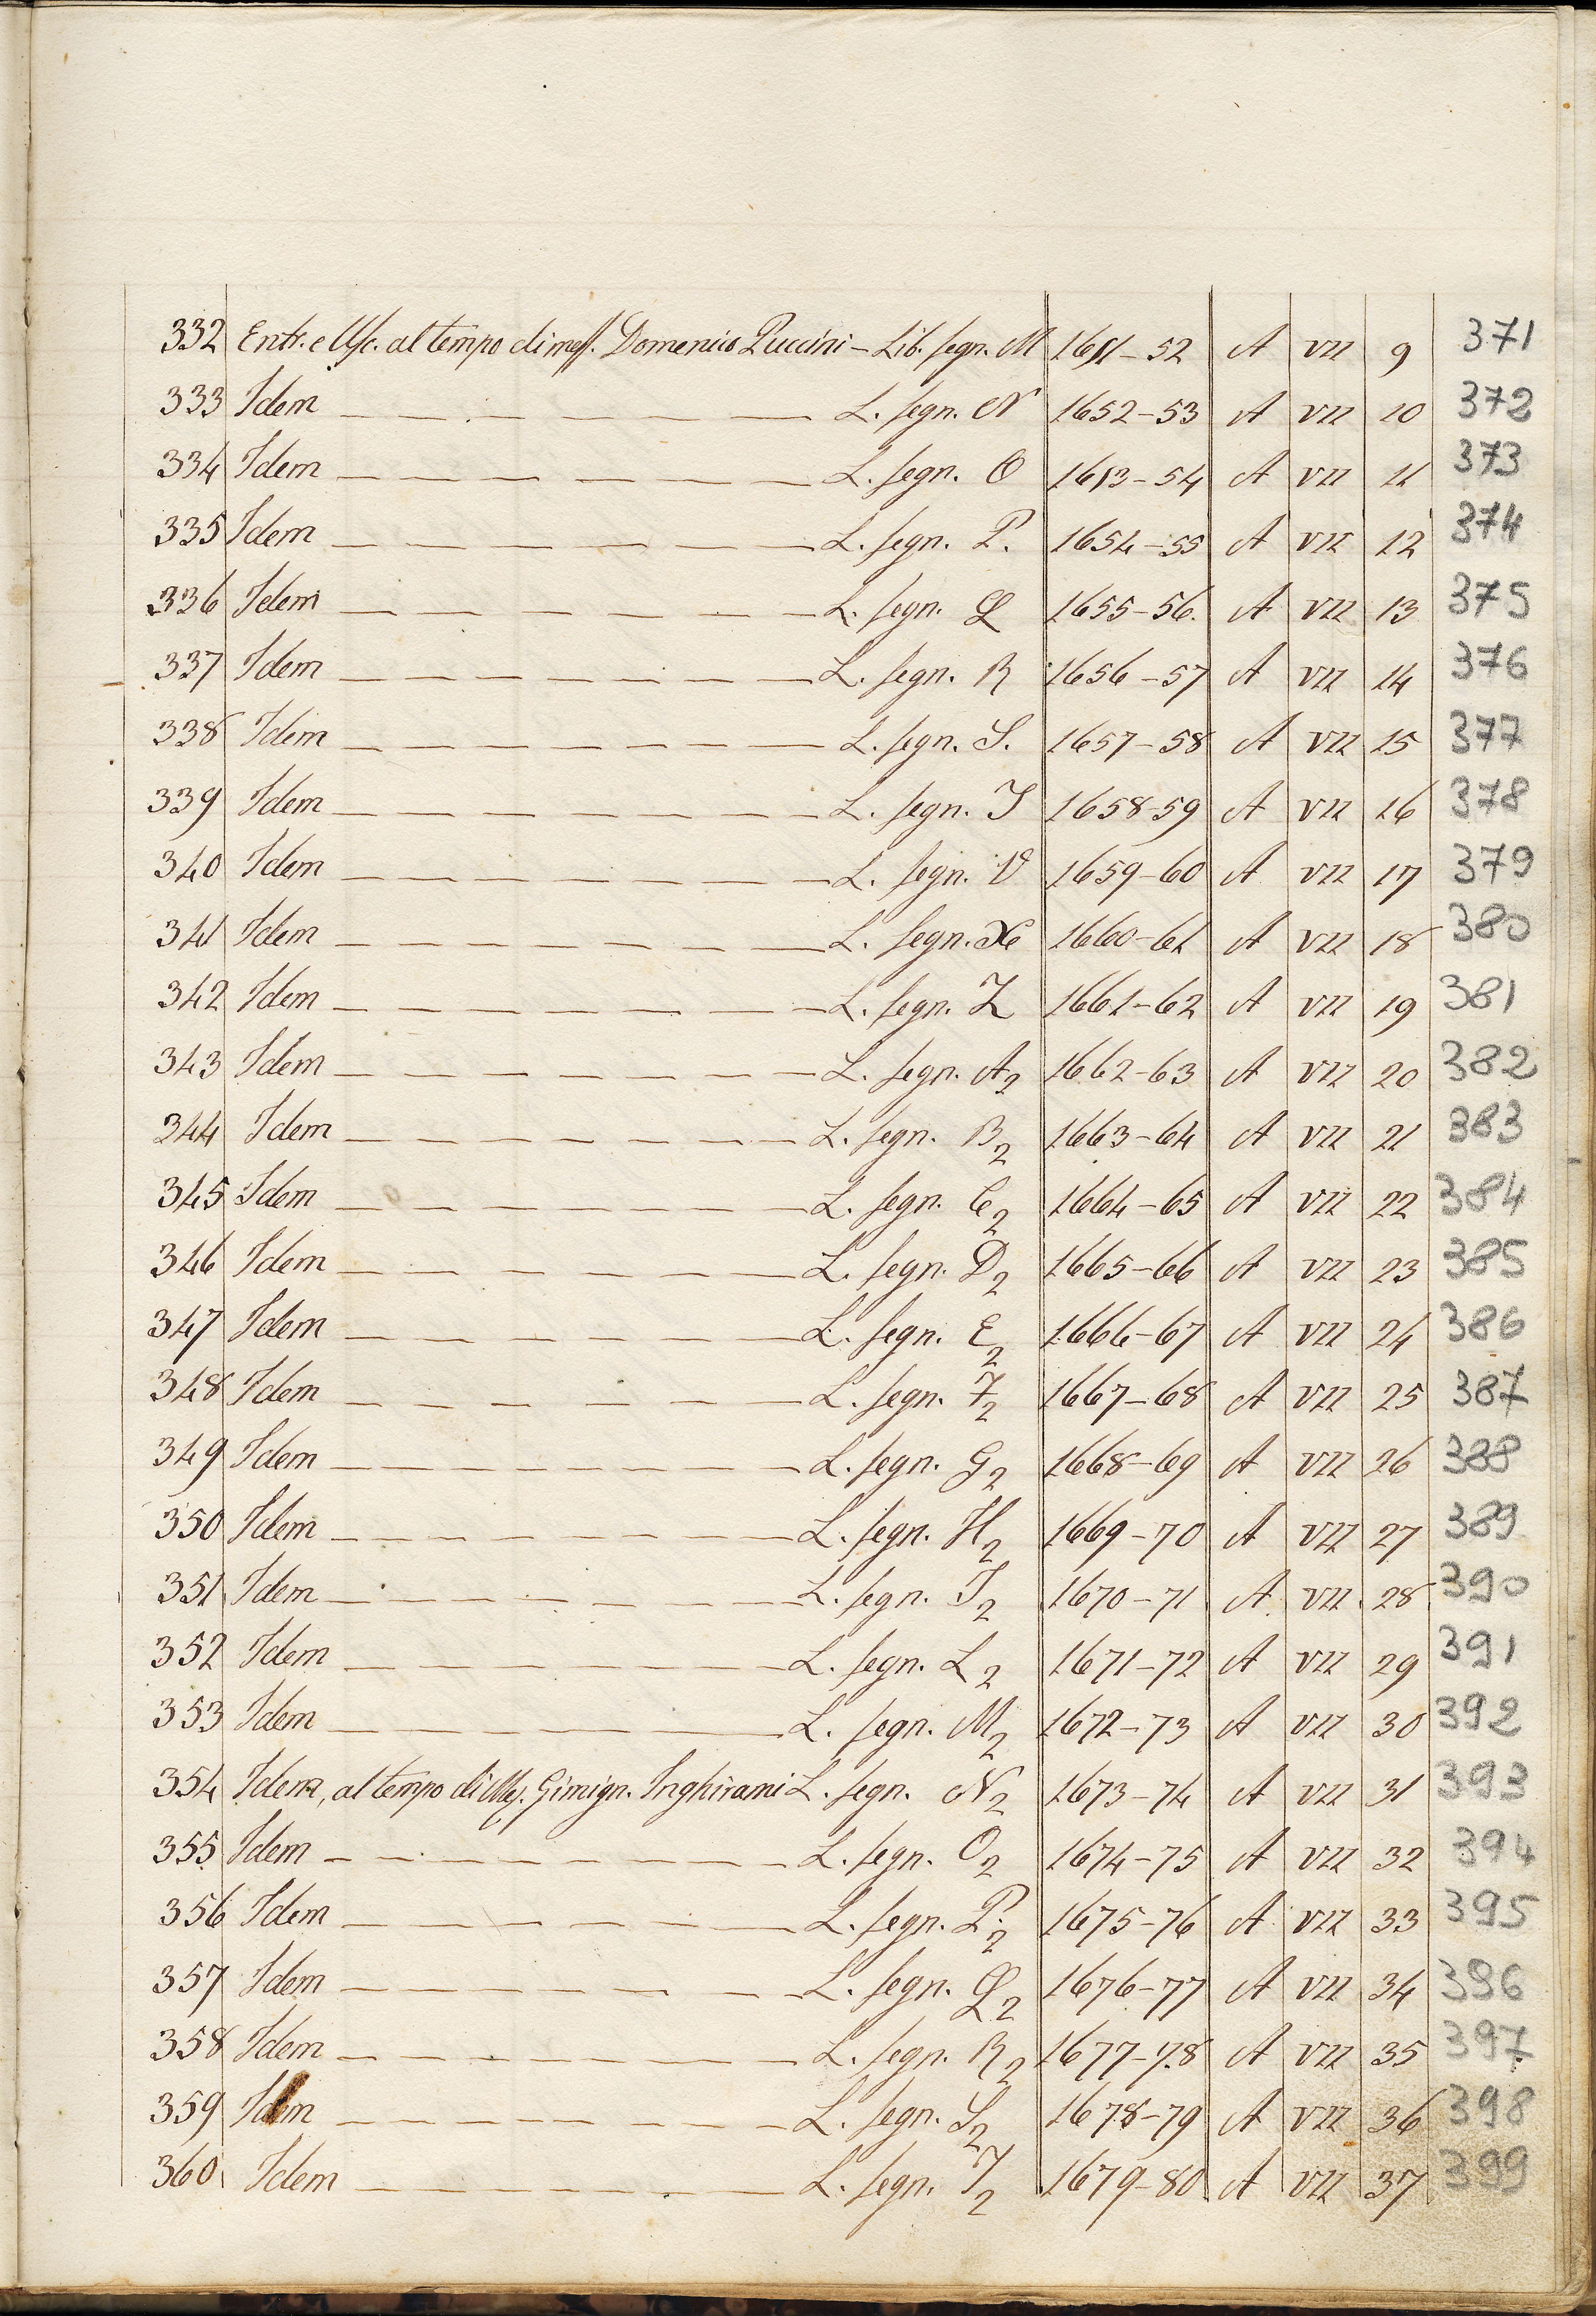 332 Entr. e Usc. al tempo di mess. Domenico Puccini – Lib. segn. M 1651–52 A VII 9 371
333 Idem — — — — — — — L. segn. N 1652–53 A VII 10 372
334 Idem — — — — — — — L. segn. O 1653–54 A VII 11 373
335 Idem — — — — — — — L. segn. P. 1654–55 A VII 12 374
336 Idem — — — — — — — L. segn. Q 1655–56. A VII 13 375
337 Idem — — — — — — — L. segn. R 1656–57 A VII 14 376
338 Idem — — — — — — — L. segn. S. 1657–58 A VII 15 377
339 Idem — — — — — — — L. segn. T 1658–59 A VII 16 378
340 Idem — — — — — — — L. segn. V 1659–60 A VII 17 379
341 Idem — — — — — — — L. segn. X 1660–61 A VII 18 380
342 Idem — — — — — — — L. segn. Z 1661–62 A VII 19 381
343 Idem — — — — — — — L. segn. A2 1662–63 A VII 20 382
344 Idem — — — — — — — L. segn. B2 1663–64 A VII 21 383
345 Idem — — — — — — — L. segn. C2 1664–65 A VII 22 384
346 Idem — — — — — — — L. segn. D2 1665–66 A VII 23 385
347 Idem — — — — — — — L. segn. E2 1666–67 A VII 24 386
348 Idem — — — — — — — L. segn. F2 1667–68 A VII 25 387
349 Idem — — — — — — — L. segn. G2 1668–69 A VII 26 388
350 Idem — — — — — — — L. segn. H2 1669–70 A VII 27 389
351 Idem — — — — — — — L. segn. I2 1670–71 A VII 28 390
352 Idem — — — — — — — L. segn. L2 1671–72 A VII 29 391
353 Idem — — — — — — — L. segn. M2 1672–73 A VII 30 392
354 Idem, al tempo di Mes. Gimign. Inghirami L. segn. N2 1673–74 A VII 31 393
355 Idem — — — — — — — L. segn. O2 1674–75 A VII 32 394
356 Idem — — — — — — — L. segn. P.2 1675–76 A VII 33 395
357 Idem — — — — — — — L. segn. Q2 1676–77 A VII 34 396
358 Idem — — — — — — — L. segn. R2 1677–78 A VII 35 397
359 Idem — — — — — — — L. segn. S2 1678–79 A VII 36 398
360 Idem — — — — — — — L. segn. T2 1679–80 A VII 37 399